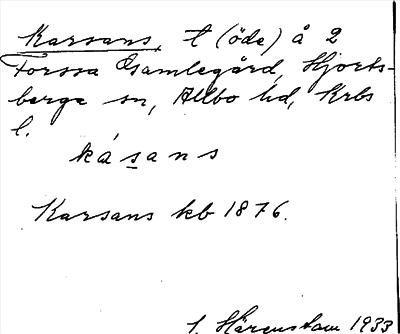 Karsans, t (öde) å 2
Torssa Gamlegård, Hjorts-
berga sn, Allbo hd, Krbs
l.
kásans
Karsans kb 1876.
1. Härenstam 1933